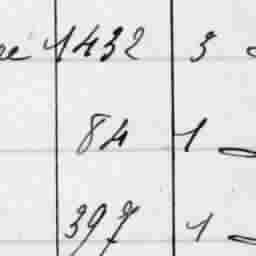 1432 3
84 1
397 1